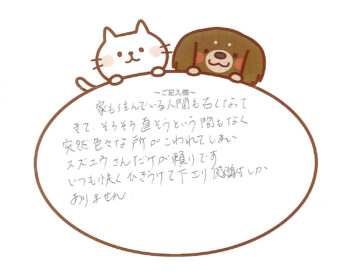 ～ご記入欄～
家も住んでいる人間も古くなって
きて、そろそろ直そうという間もなく
突然色々な所がこわれてしまい
スズエウさんだけが頼りです
いつも快くひきうけて下さり感謝しか
ありません